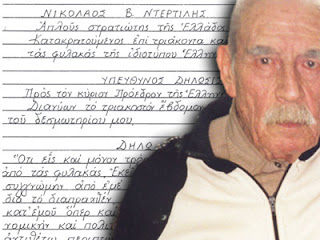 ΝΙΚΟΛΑΟΣ Β. ΝΤΕΡΤΙΛΗΣ
Ἁπλοῦς στρατιώτης τῆς Ἑλλάδα
Κατακρατούμενος ἐπί τριάκοντα κα
τάς φυλακάς τῆς ἰδιοτύπου Ἑλλην
ΥΠΕΥΘΥΝΟΣ ΔΗΛΩΣΙΣ
Πρός τόν κύριον Πρόεδρον τῆς Ἑλλην
Διανύων τό τριακοστόν ἕβδομον
τοῦ δεσμωτηρίου μου,
ΔΗΛΩ
Ὅτι εἷς καί μόνον τρόπ
ἀπό τάς φυλακάς. Ἐκεῖ
συγγνώμην ἀπό ἐμέ
διά τό διαπραχθέν
κατ' ἐμοῦ ὅπερ καί
νομικήν καί πολι